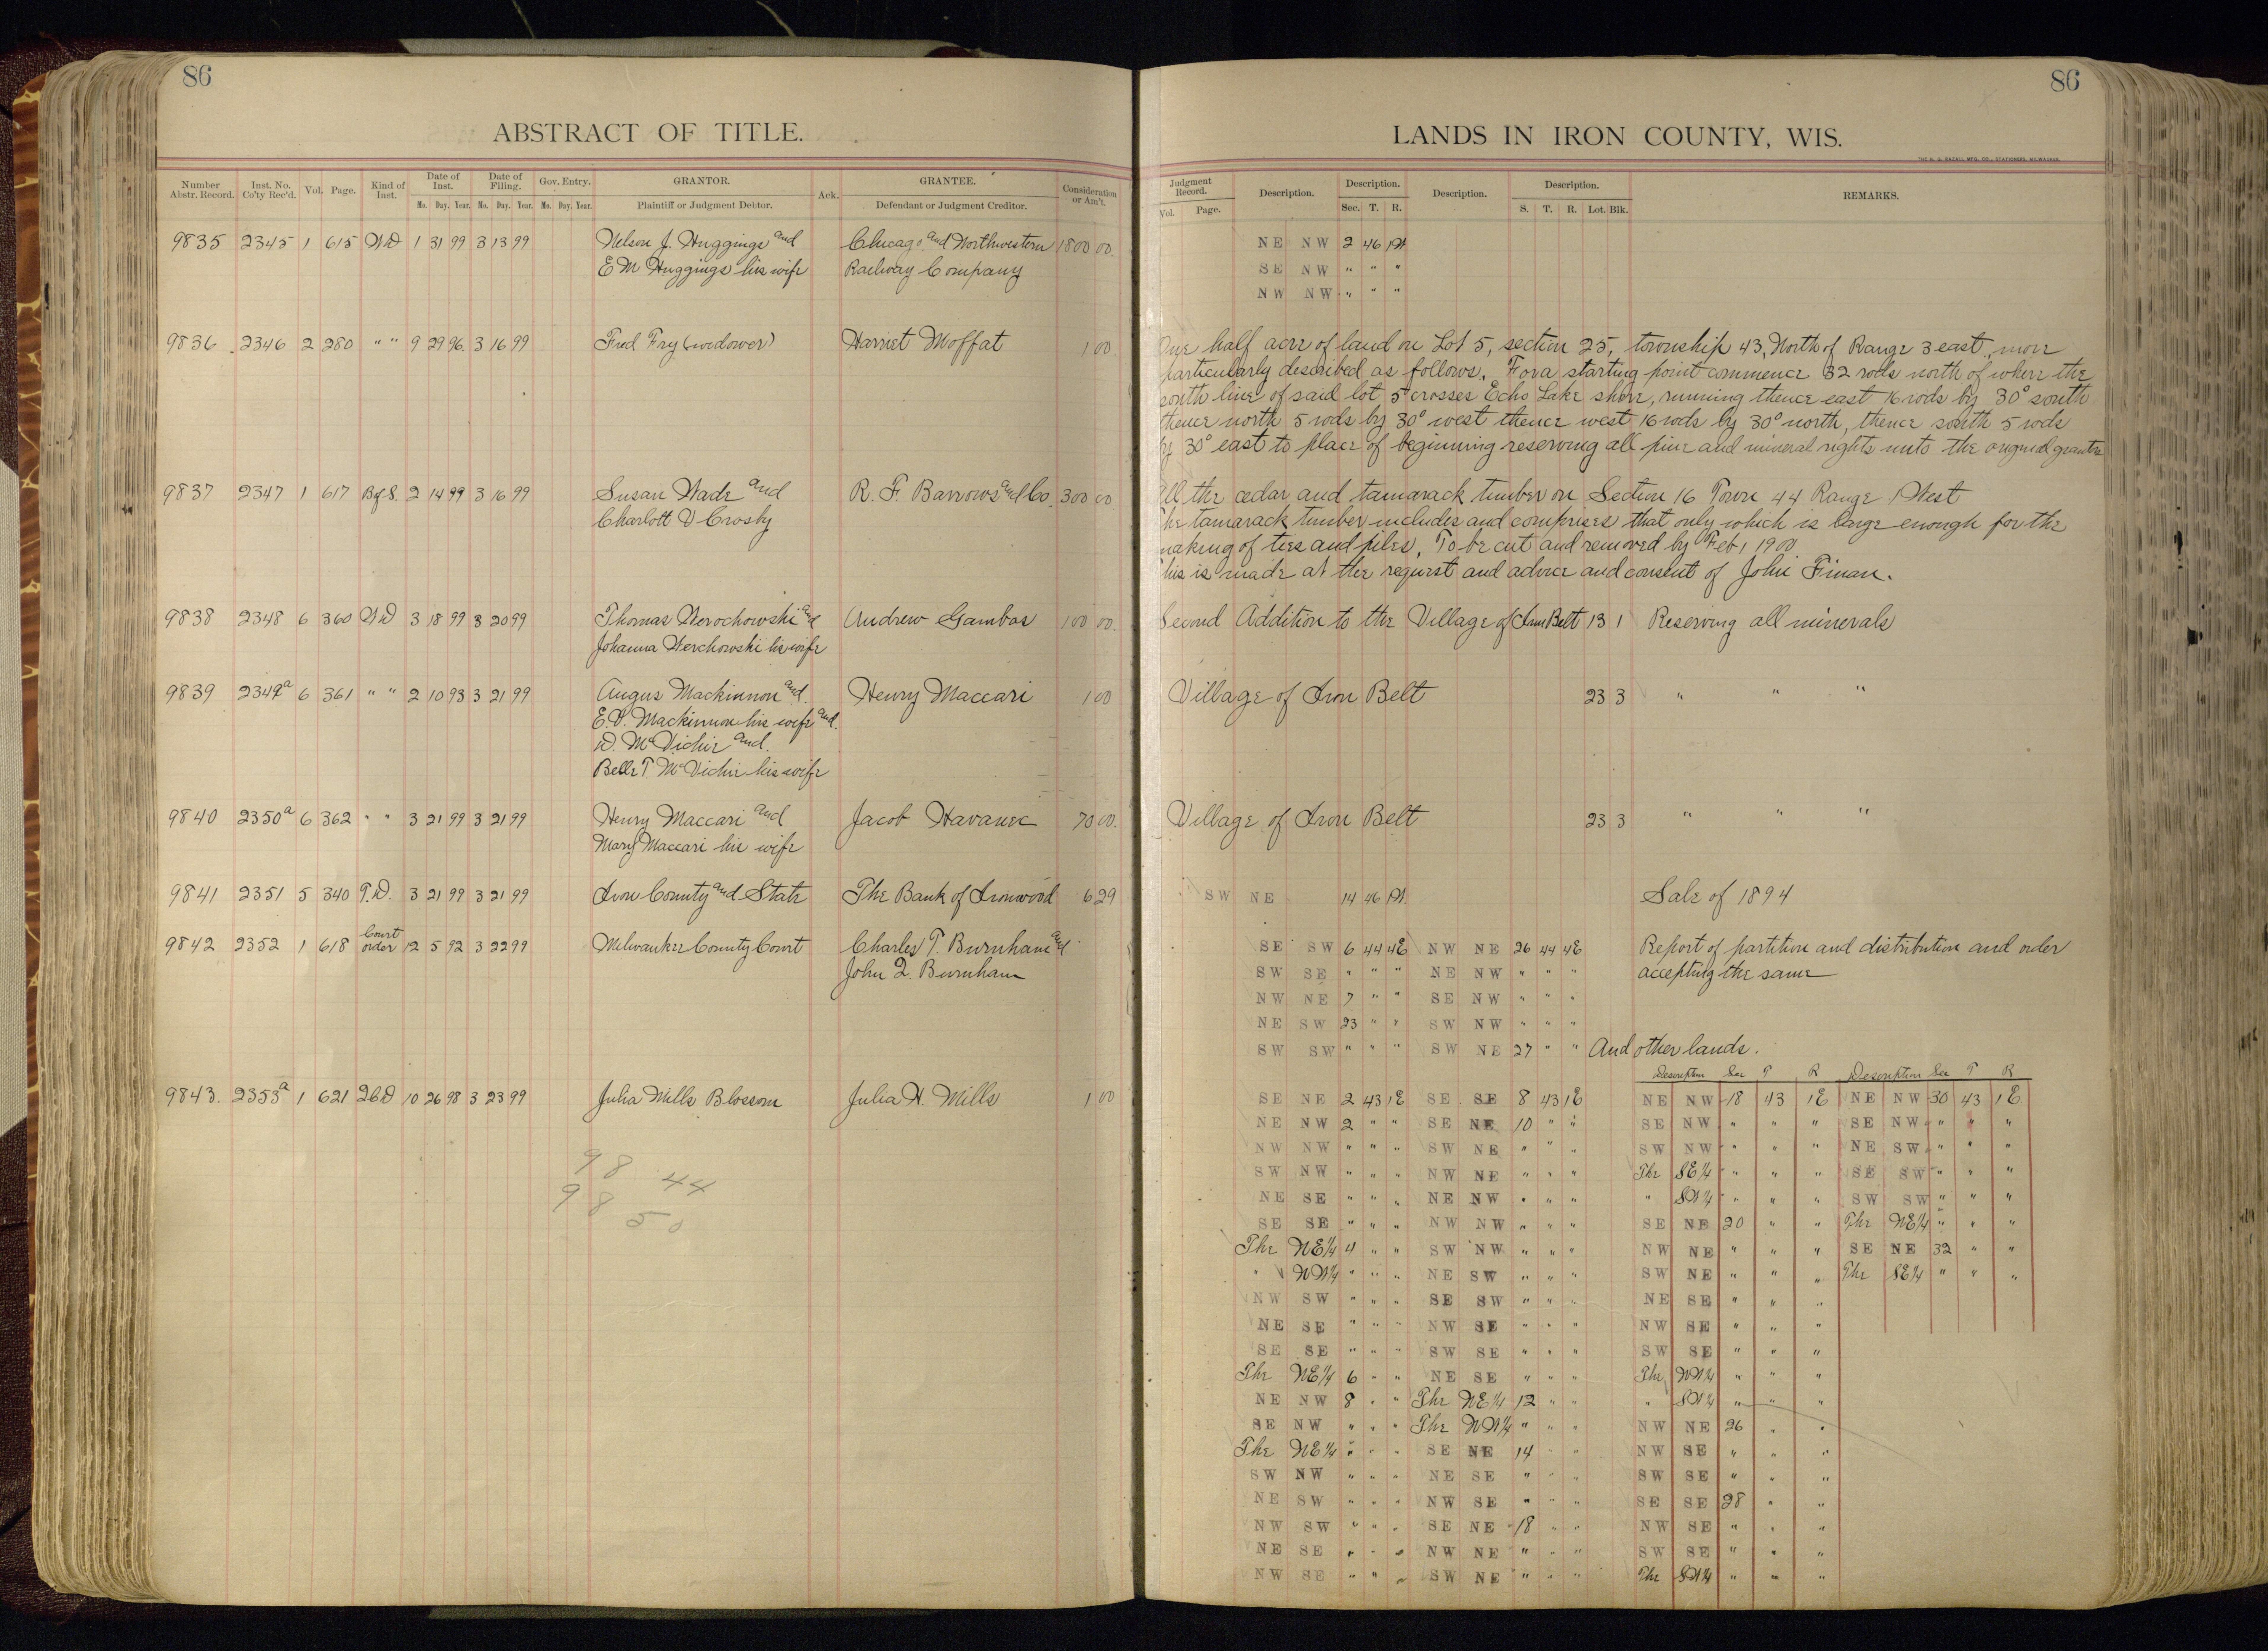 86
ABSTRACT OF TITLE.
Number Abstr. Record. Inst. No. Co'ty Rec'd. Vol. Page. Kind of Inst. Date of Inst. Mo. Day. Year. Date of Filing. Mo. Day. Year. Gov. Entry. Mo. Day. Year. GRANTOR. Plaintiff or Judgment Debtor. Ack. GRANTEE. Defendant or Judgment Creditor. Consideration or Am't.
9835 2345 1 615 WD 1 31 99 3 13 99 Nelson J. Huggings and Chicago and Northwestern 1800 00
E M Huggings his wife Railway Company
9836 2346 2 280 " " 9 29 96 3 16 99 Fred Fry (widower) Harriet Moffat 1 00
9837 2347 1 617 B of S. 2 14 99 3 16 99 Susan Wade and R. F. Barrows and Co. 300 00
Charlott D Crosby
9838 2348 6 360 WD 3 18 99 3 20 99 Thomas Werochowski and Andrew Gambos 100 00
Johanna Werchowski his wife
9839 2349a 6 361 " " 2 10 93 3 21 99 Angus Mackinnon and Henry Maccari 1 00
E.D. Mackinnon his wife and
W. McVichie and
Belle T. McVichie his wife
9840 2350a 6 362 " " 3 21 99 3 21 99 Henry Maccari and Jacob Havanec 70 00
Mary Maccari his wife
9841 2351 5 340 T.D. 3 21 99 3 21 99 Iron County and State The Bank of Ironwood 6 29
9842 2352 1 618 Court order 12 5 92 3 22 99 Milwaukee County Court Charles T. Burnham and
John Q. Burnham
9843 2353a 1 621 2CD 10 26 98 3 23 99 Julia Mills Blossom Julia H. Mills 1 00
98 44
98 50
86
LANDS IN IRON COUNTY, WIS.
Judgment Record. Vol. Page. Description. Description. Sec. T. R. Description. Description. S. T. R. Lot. Blk. REMARKS.
NE NW 2 46 1W
SE NW " " "
NW NW " " "
One half acre of land on Lot 5, section 25, township 43, North of Range 3 east, more
particularly described as follows. For a starting point commence 32 rods north of where the
south line of said lot 5 crosses Echo Lake shore, running thence east 16 rods by 30° south
thence north 5 rods by 30° west thence west 16 rods by 30° north, thence south 5 rods
by 30° east to place of beginning reserving all pine and mineral rights unto the original grantor
All the cedar and tamarack timber on Section 16 Town 44 Range 1 West
The tamarack timber includes and comprises that only which is large enough for the
making of ties and piles. To be cut and removed by Feb 1 1900
This is made at the request and advice and consent of John Finan.
Second Addition to the Village of Iron Belt 13 1 Reserving all minerals
Village of Iron Belt 23 3 " " "
Village of Iron Belt 23 3 " " "
SW NE 14 46 1W Sale of 1894
SE SW 6 44 4E NW NE 26 44 4E Report of partition and distribution and order
SW SE " " " NE NW " " " accepting the same
NW NE 7 " " SE NW " " "
NE SW 23 " " SW NW " " "
SW SW " " " SW NE 27 " " And other lands.
Description Sec T R Description Sec T R
SE NE 2 43 1E SE SE 8 43 1E NE NW 18 43 1E NE NW 30 43 1E
NE NW 2 " " SE NE 10 " " SE NW " " " SE NW " " "
NW NW " " " SW NE " " " SW NW " " " NE SW " " "
SW NW " " " NW NE " " " The SE¼ " " " SE SW " " "
NE SE " " " NE NW " " " " SW¼ " " " SW SW " " "
SE SE " " " NW NW " " " SE NE 20 " " The NE¼ " " "
The NE¼ 4 " " SW NW " " " NW NE " " " SE NE 32 " "
" NW¼ " " " NE SW " " " SW NE " " " The SE¼ " " "
NW SW " " " SE SW " " " NE SE " " "
NE SE " " " NW SE " " " NW SE " " "
SE SE " " " SW SE " " " SW SE " " "
The NE¼ 6 " " NE SE " " " The NW¼ " " "
NE NW 8 " " The NE¼ 12 " " " SW¼ " " "
SE NW " " " The NW¼ " " " NW NE 26 " "
The NE¼ " " " SE NE 14 " " NW SE " " "
SW NW " " " NE SE " " " SW SE " " "
NE SW " " " NW SE " " " SE SE 28 " "
NW SW " " " SE NE 18 " " NW SE " " "
NE SE " " " NW NE " " " SW SE " " "
NW SE " " " SW NE " " " The SW¼ " " "